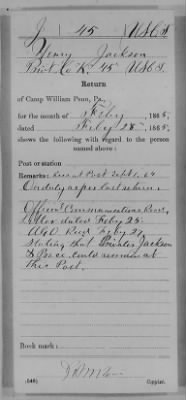 J 45 U.S.C.T.
Henry Jackson
Priv. Co K. 45 U.S.C.T.
Return
of Camp William Penn, Pa.
for the month of Feby, 1865,
dated Feby 28, 1865,
shows the following with regard to the person
named above:
Post or station
Remarks: Rec at Post Sept 1. 64
On duty as per last return.
Officers Communications Recd.
letter dated Feby 25.
A.G.O. Recd Feby 27
stating that Private Jackson
could remain at
this Post.
Book mark:
(549)
Copyist.